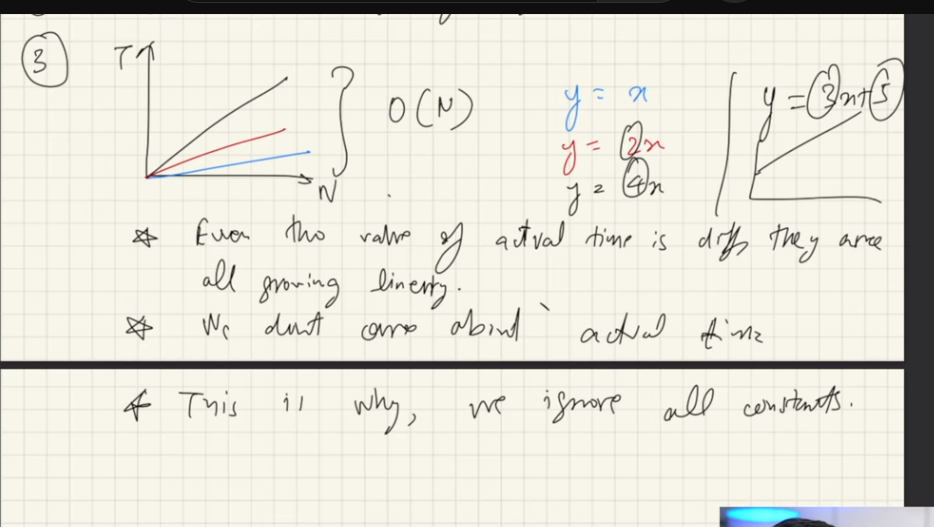 3
T
N
O(N)
y = x
y = 2x
y = 4x
y = 3x+5
Even tho value of actual time is diff they are
all growing linerly.
We dont care about actual time
This is why, we ignore all constants.